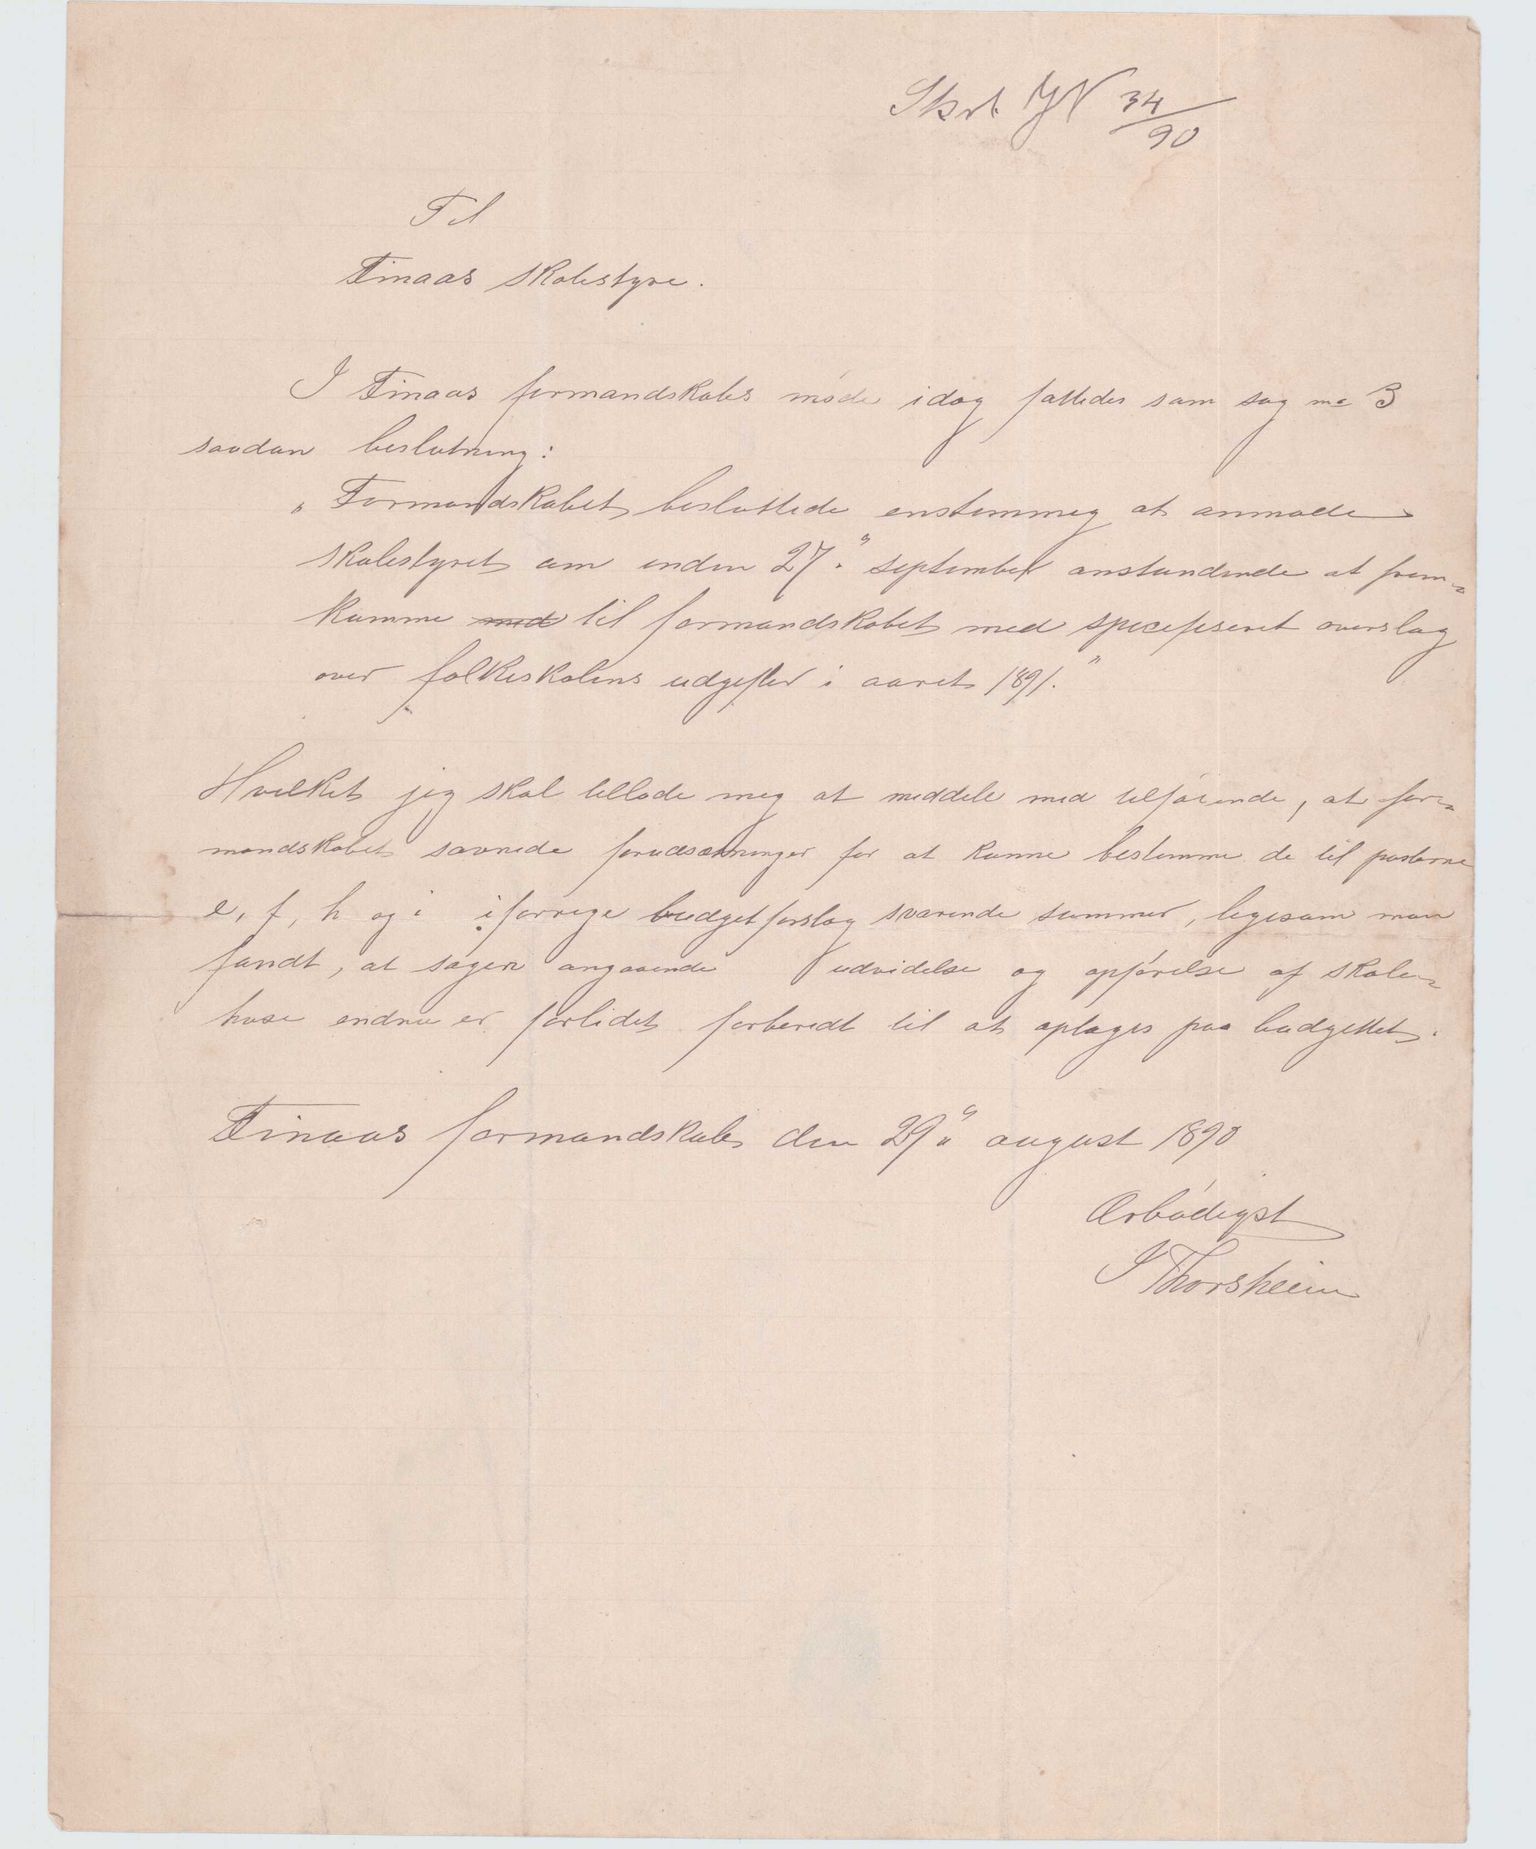 Skst JN 34/90
Til
Finaas skolestyre.
I Finaas formandskabs møde idag fattedes som sag no 3
saadan beslutning:
„Formandskabet besluttede enstemmig at anmode
skolestyret om inden 27." september anstundende at frem-
komme med til formandskabet med specifiseret overslag
over folkeskolens udgifter i aaret 1891."
Hvilket jeg skal tillade mig at meddele med tilføiende, at for-
mandskabet savnede forudsætninger for at kunne bestemme de til posterne
e, f, h og i i forrige budgetforslag svarende summer, ligesom man
fandt, at sagen angaaende udvidelse og opførelse af skole-
huse endnu er forlidet forberedt til at optages paa budgettet.
Finaas formandskab den 29" august 1890
Ærbødigst
J Thorsheim